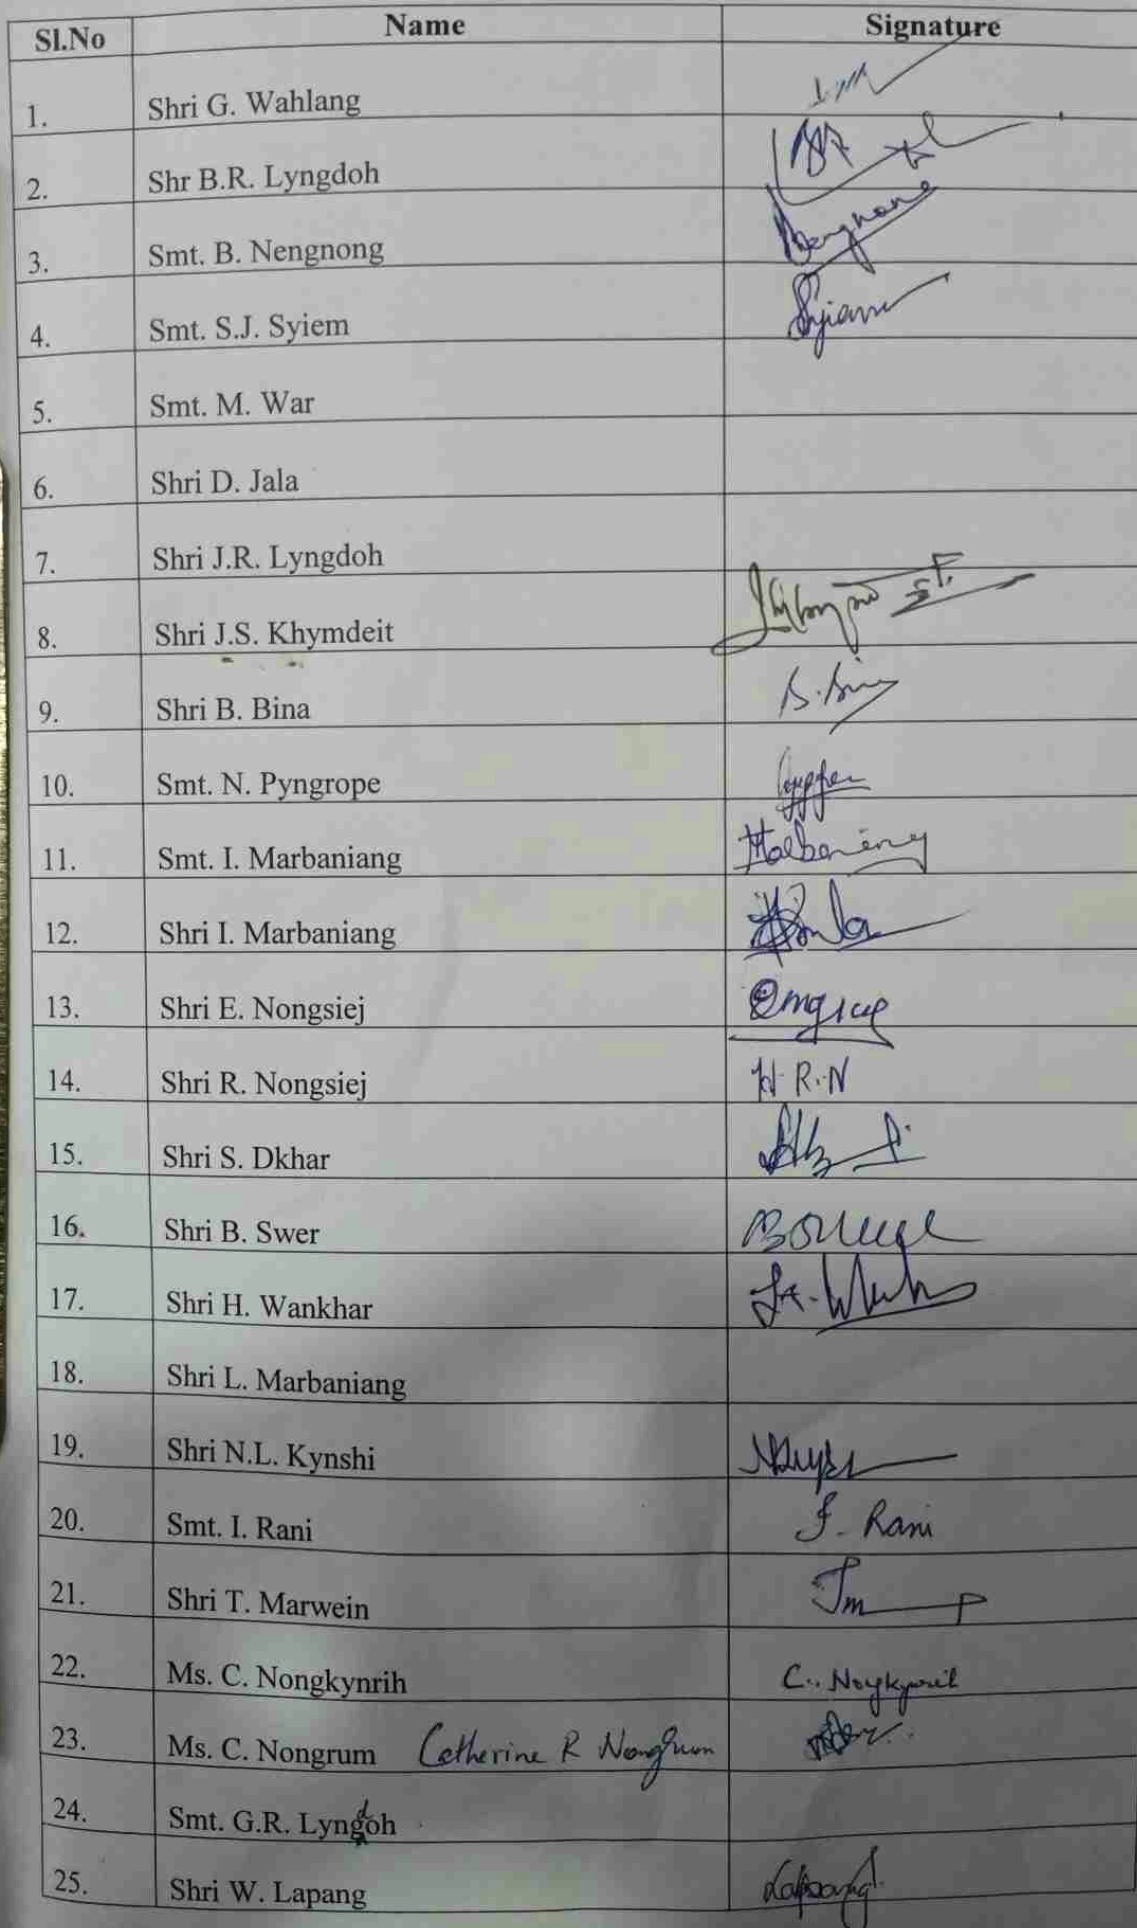 Sl.No Name Signature
1. Shri G. Wahlang
2. Shr B.R. Lyngdoh
3. Smt. B. Nengnong
4. Smt. S.J. Syiem
5. Smt. M. War
6. Shri D. Jala
7. Shri J.R. Lyngdoh
8. Shri J.S. Khymdeit
9. Shri B. Bina
10. Smt. N. Pyngrope
11. Smt. I. Marbaniang
12. Shri I. Marbaniang
13. Shri E. Nongsiej
14. Shri R. Nongsiej H.R.N
15. Shri S. Dkhar
16. Shri B. Swer
17. Shri H. Wankhar
18. Shri L. Marbaniang
19. Shri N.L. Kynshi
20. Smt. I. Rani I. Rani
21. Shri T. Marwein
22. Ms. C. Nongkynrih C. Nongkynrih
23. Ms. C. Nongrum Catherine R Nongrum
24. Smt. G.R. Lyngdoh
25. Shri W. Lapang Lapang